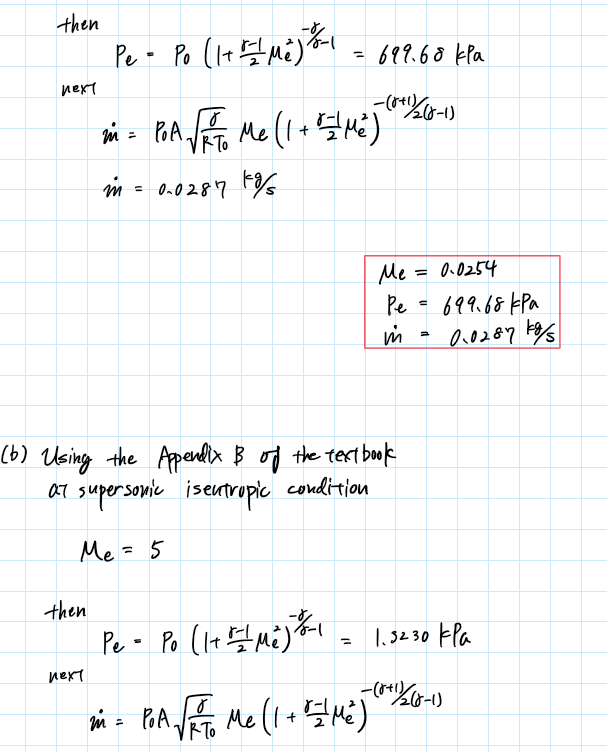 then
Pe = P₀ (1+ (γ-1)/2 Me²)^(-γ/γ-1) = 699.68 kPa
next
ṁ = P₀A √(γ/RT₀) Me (1 + (γ-1)/2 Me²)^(-(γ+1)/2(γ-1))
ṁ = 0.0287 kg/s
Me = 0.0254
Pe = 699.68 kPa
ṁ = 0.0287 kg/s
(b) Using the Appendix B of the textbook
at supersonic isentropic condition
Me = 5
then
Pe = P₀ (1+ (γ-1)/2 Me²)^(-γ/γ-1) = 1.3230 kPa
next
ṁ = P₀A √(γ/RT₀) Me (1 + (γ-1)/2 Me²)^(-(γ+1)/2(γ-1))